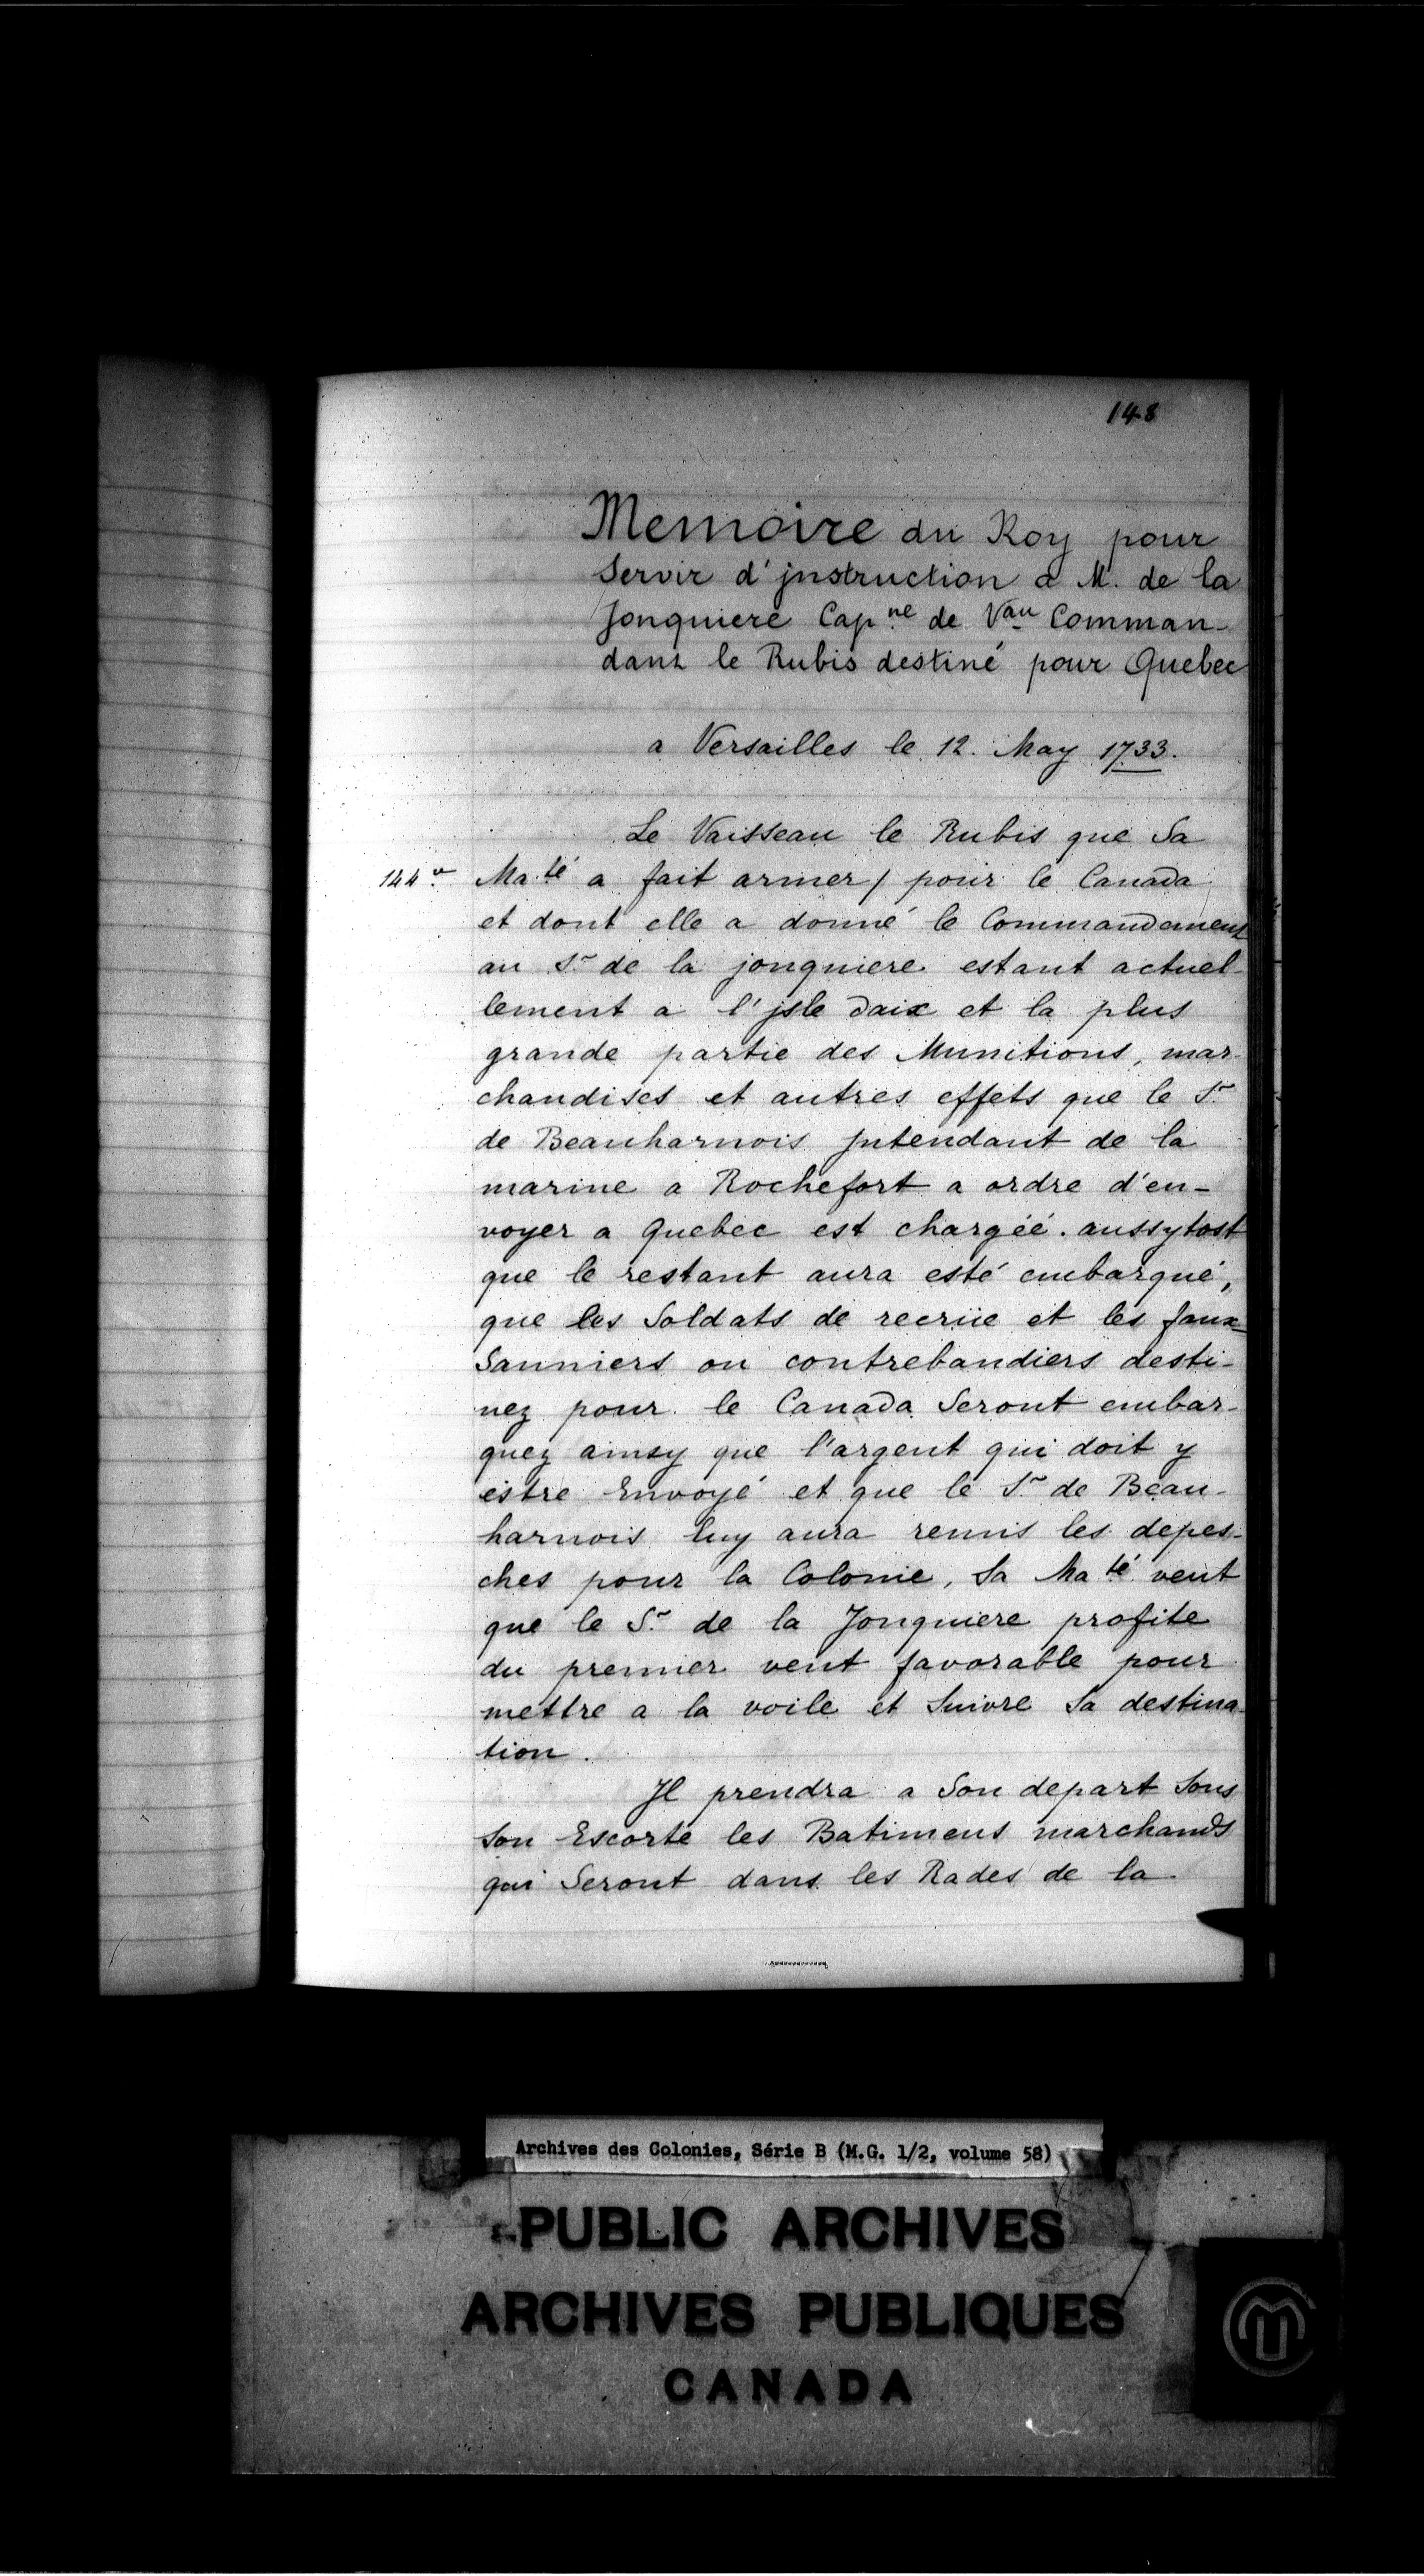 148
Memoire du Roy pour
Servir d'jnstruction a M. de la
Jonquiere Cap.ne de Vau Comman-
dant le Rubis destiné pour Quebec
a Versailles le 12. May 1733.
Le Vaisseau le Rubis que Sa
144 v. Ma.té a fait armer / pour le Canada
et dont elle a donné le Commandement
au Sr. de la jonquiere estant actuel-
lement a l'jsle daix et la plus
grande partie des Munitions, mar-
chandises et autres effets que le Sr.
de Beauharnois jntendant de la
marine a Rochefort a ordre d'en-
voyer a quebec est chargéé. aussytost
que le restant aura esté embarqué,
que les Soldats de recrüe et les faux-
Sauniers ou contrebandiers desti-
nez pour le Canada Seront embar-
quez ainsy que l'argent qui doit y
estre Envoyé et que le Sr. de Beau-
harnois luy aura remis les depes-
ches pour la Colonie, Sa Ma.té veut
que le Sr. de la Jonquiere profite
du premier vent favorable pour
mettre a la voile et Suivre Sa destina-
tion.
Jl prendra a Son depart Sous
Son Escorte les Batimens marchands
qui Seront dans les Rades de la
Archives des Colonies, Série B (M.G. 1/2, volume 58)
PUBLIC ARCHIVES
ARCHIVES PUBLIQUES
CANADA